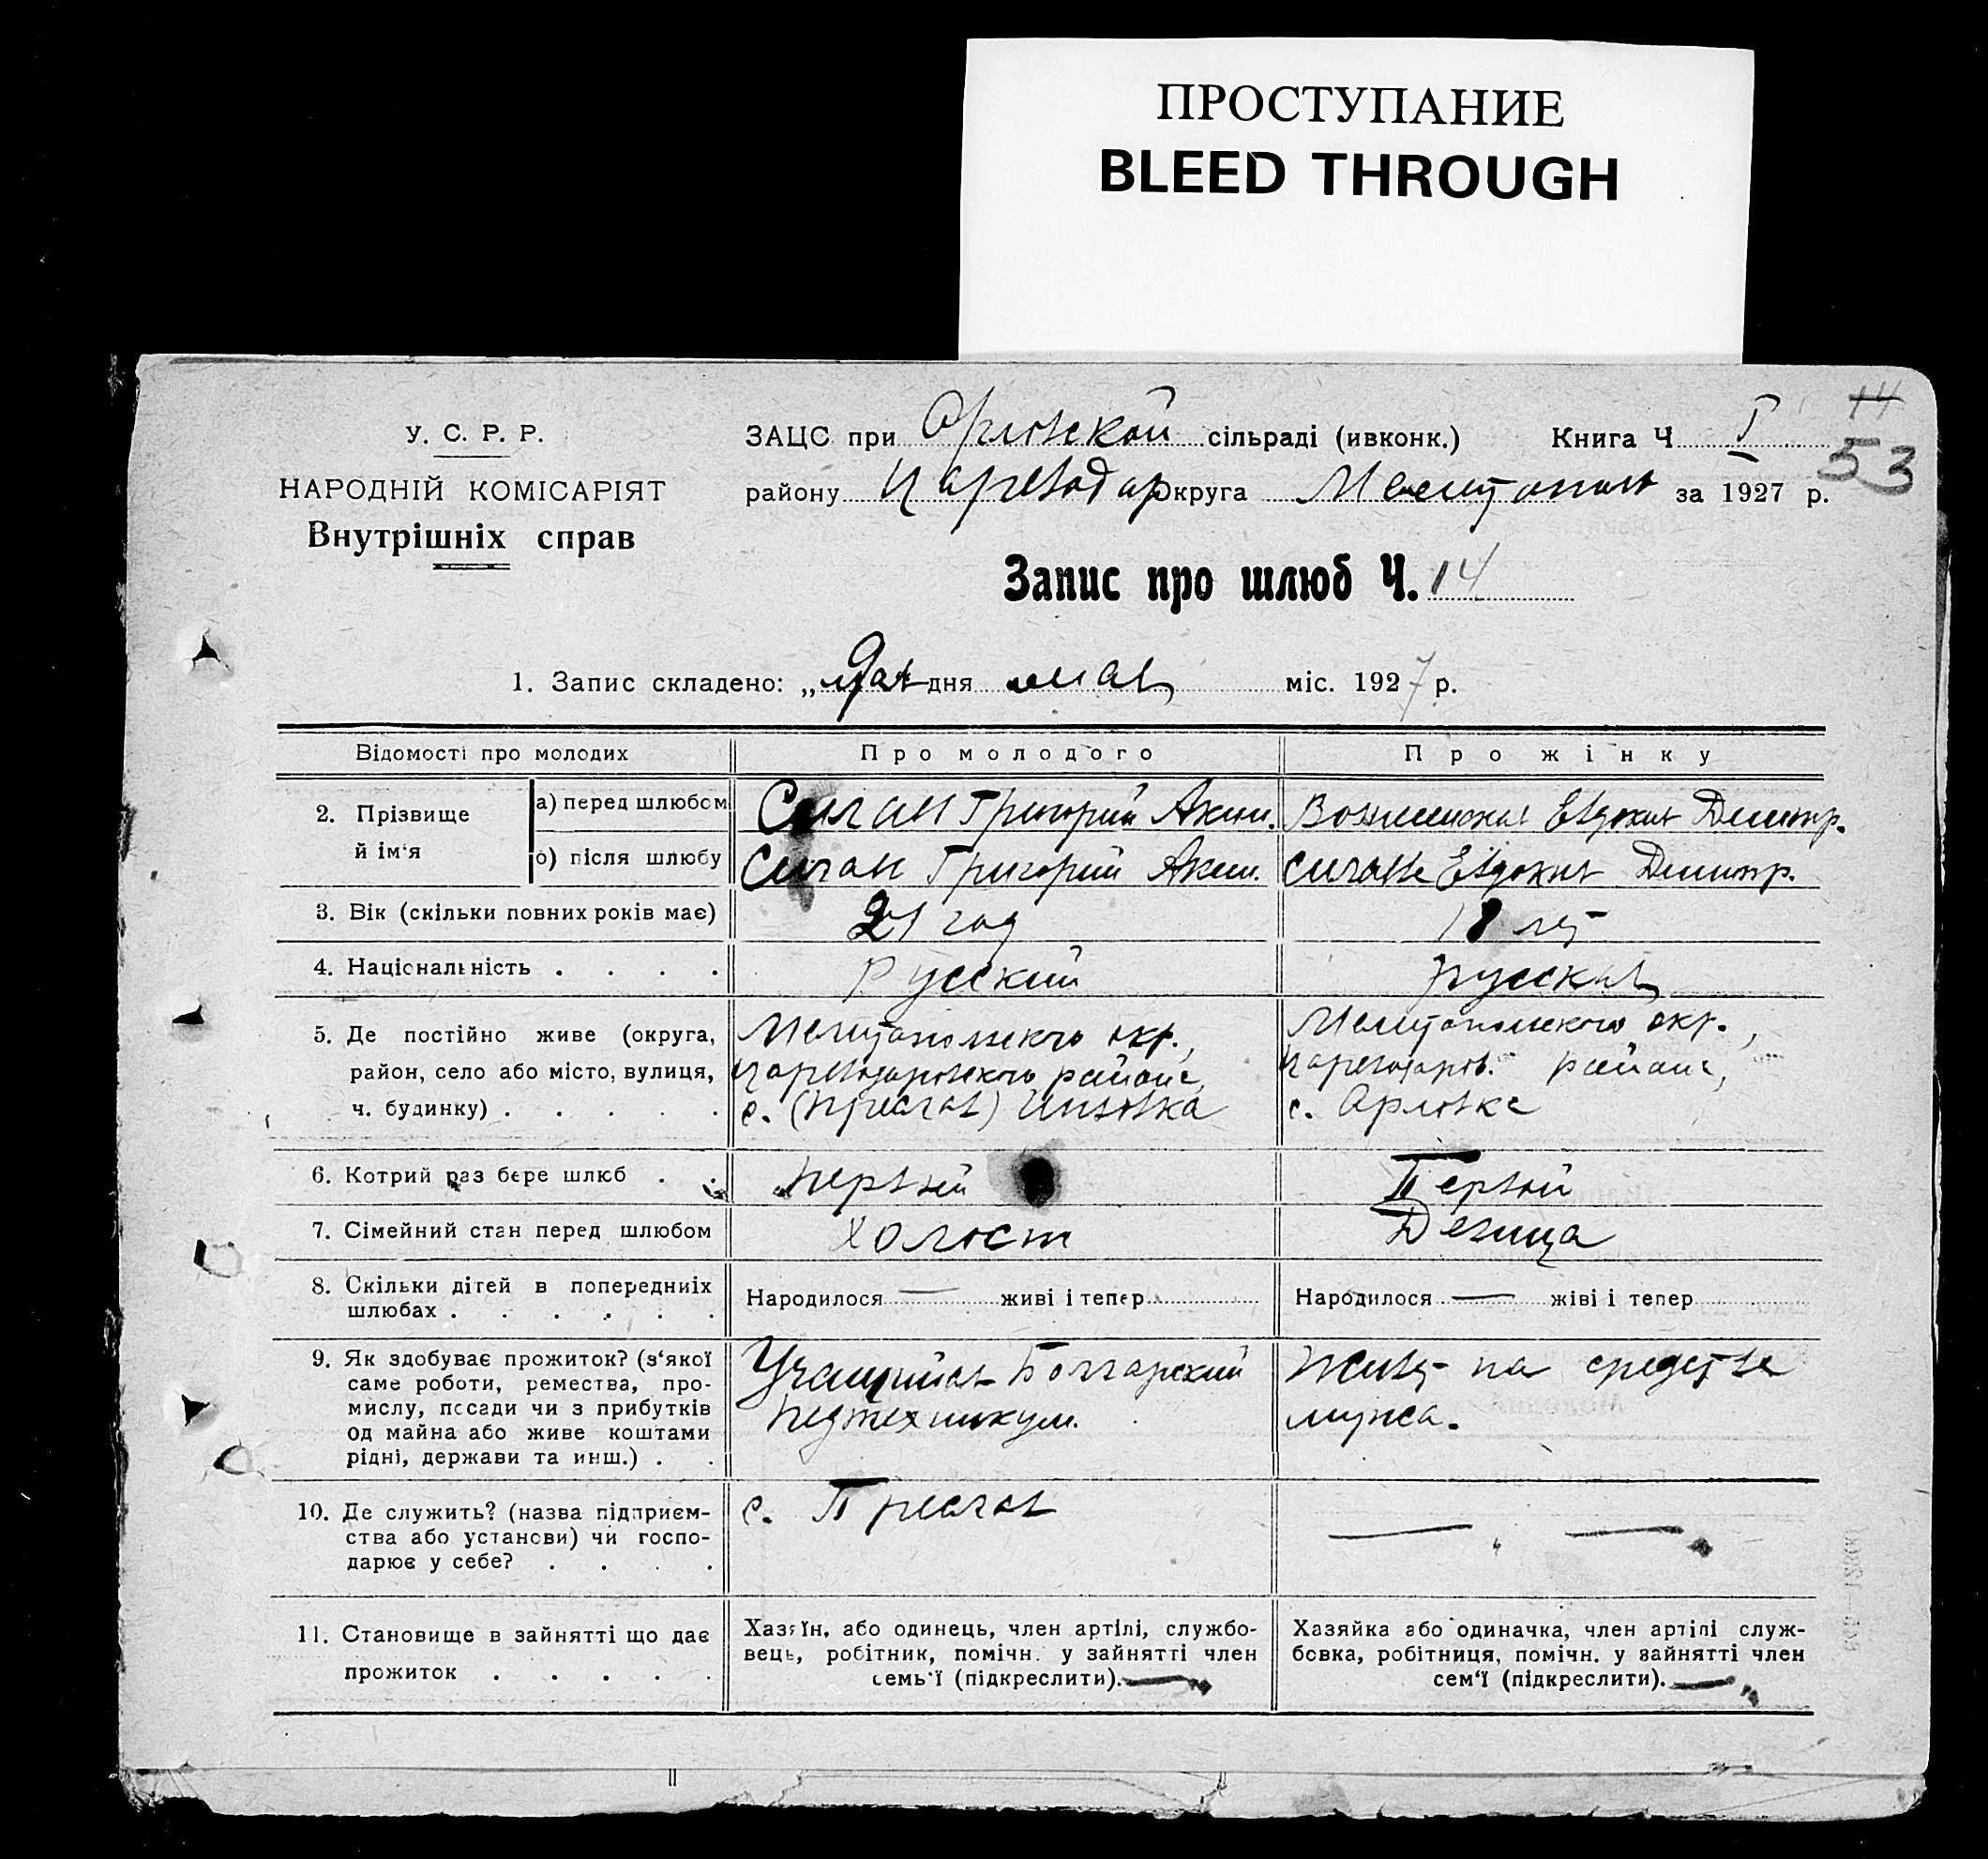 ПРОСТУПАНИЕ
BLEED THROUGH
14
У. С. Р. Р.
НАРОДНІЙ КОМІСАРІЯТ
Внутрішніх справ
ЗАЦС при Орловской сільраді (ивконк.) Книга Ч I
53
району Цареводар округа Мелитополь за 1927 р.
Запис про шлюб Ч. 14
1. Запис складено: „ дня мая міс. 1927 р.
Відомості про молодих Про молодого Про жінку
2. Прізвище й ім'я
а) перед шлюбом Григорий Аким. Евдокия Димитр.
о) після шлюбу Григорий Аким. Евдокия Димитр.
3. Вік (скільки повних років має) 21 год 18 лет
4. Національність . . . . Русский русская
5. Де постійно живе (округа, Мелитопольского окр., Мелитопольского окр.,
район, село або місто, вулиця, Цареводаровского района, Цареводаров. района,
ч. будинку) . . . . . с. (Преслав) Инзовка с. Орловка
6. Котрий раз бере шлюб . . первый Первый
7. Сімейний стан перед шлюбом холост Девица
8. Скільки дітей в попередниіх
шлюбах . . . . . . Народилося — живі і тепер Народилося — жіві і тепер
9. Як здобуває прожиток? (з'якої Учащийся Болгарский Живет на средства
саме роботи, ремества, про-
мислу, посади чи з прибутків Педтехникум. мужа.
од майна або живе коштами
рідні, держави та инш.) . .
10. Де служить? (назва підприєм- с. Преслав
ства або установи) чи госпо- — „ —
дарює у себе? . . . .
11. Становище в зайнятті що дає Хазяїн, або одинець, член артілі, службо- Хазяйка або одиначка, член артілі служ-
вець, робітник, помічн. у зайнятті член бовка, робітниця, помічн. у зайнятті член
прожиток . . . . . семь'ї (підкреслити). — сем'ї (підкреслити). —